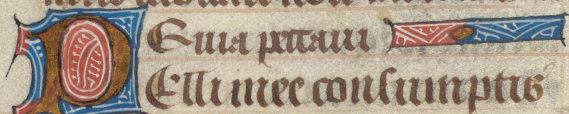 Quia peccaui
PElli mee consumptis